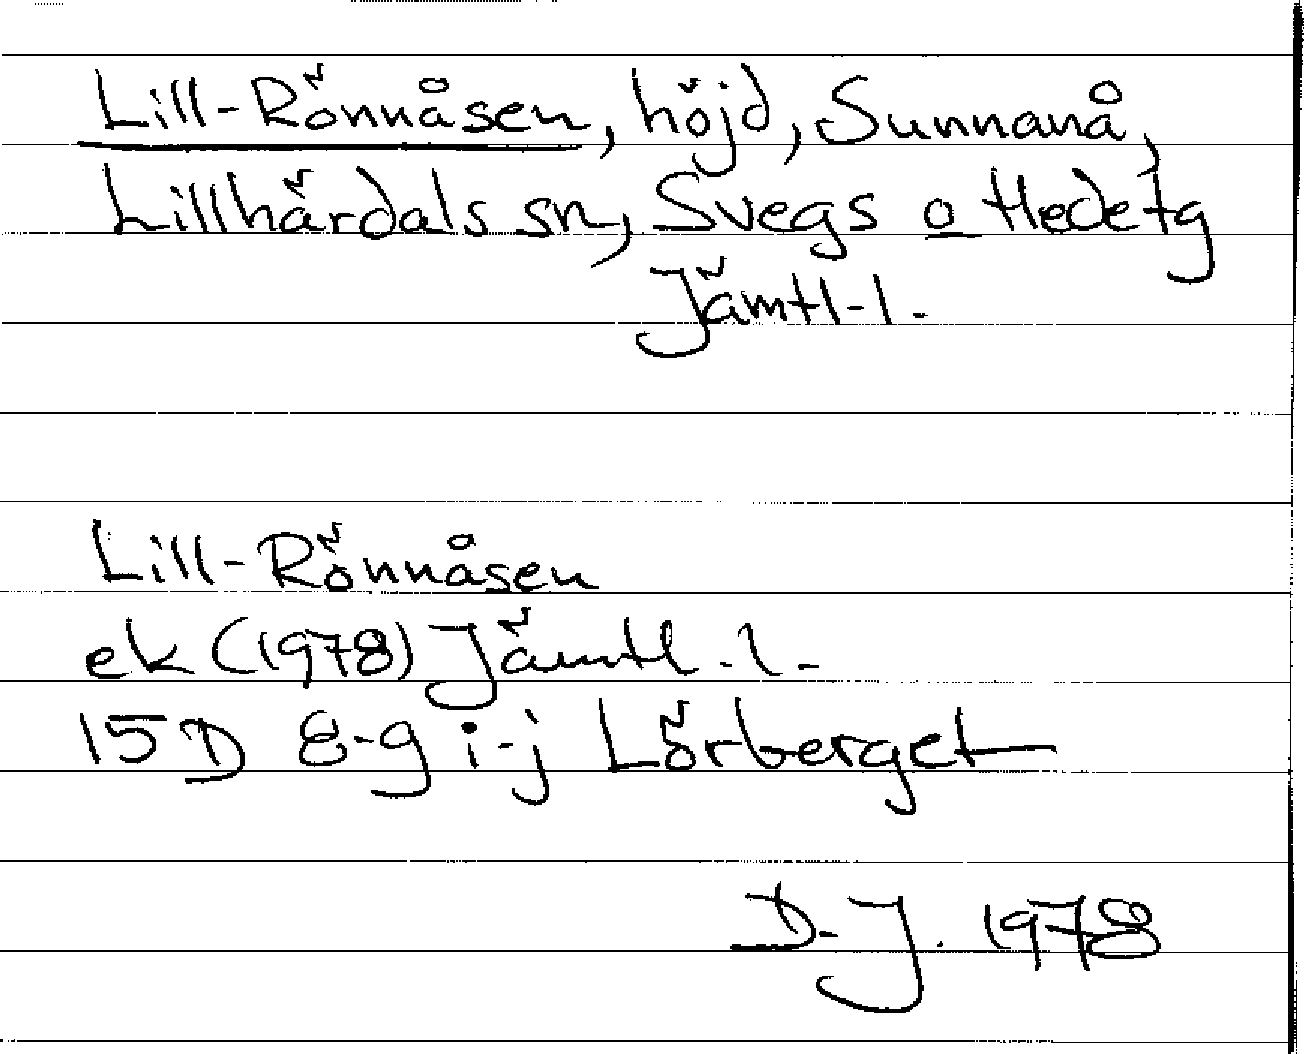 Lill-Rönnåsen, höjd, Sunnanå,
Lillhärdals sn, Svegs o Hede tg
Jämtl-l.
Lill-Rönnåsen
ek (1978) Jämtl.l.
15D 8-9 i-j Lörberget
D.J. 1978